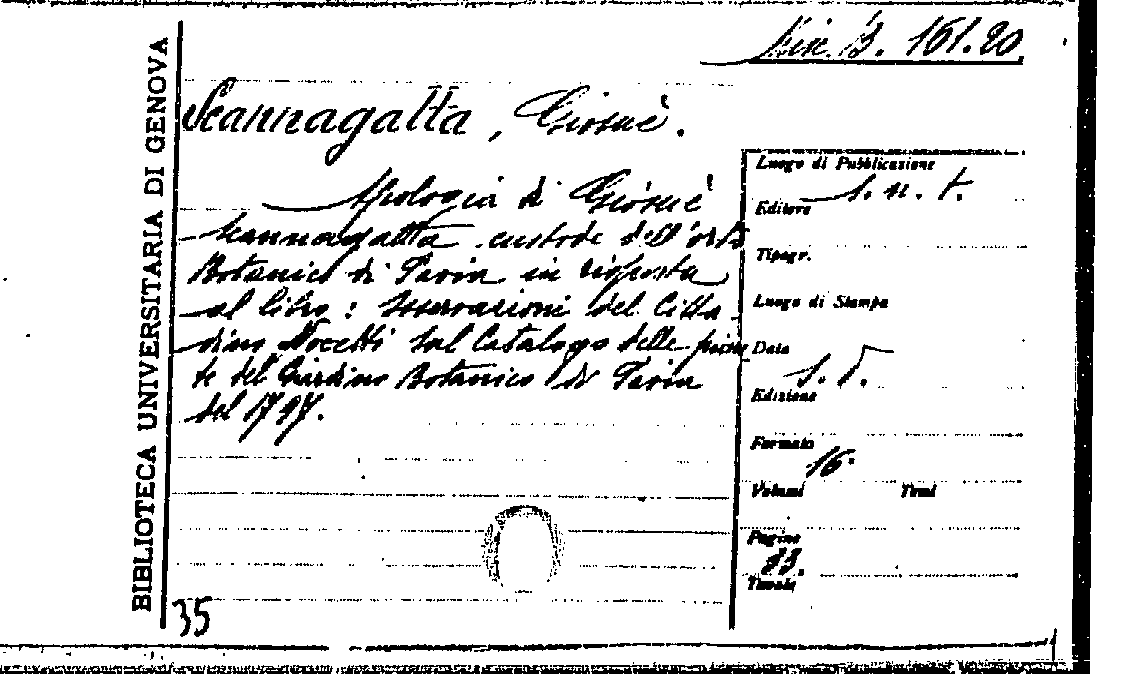 B. 161.20
BIBLIOTECA UNIVERSITARIA DI GENOVA
Scannagatta, Giosuè.
Apologia di Giosuè
Scannagatta custode dell'orto
Botanico di Pavia in risposta
al libro: Osservazioni del Citta-
dino Nocetti sul Catalogo delle pian-
te del Giardino Botanico di Pavia
del 1797.
Luogo di Pubblicazione
s. n. t.
Editore
Tipogr.
Luogo di Stampa
Data
s. d.
Edizione
Formato
16.
Volumi Tomi
Pagine
Tavole
35